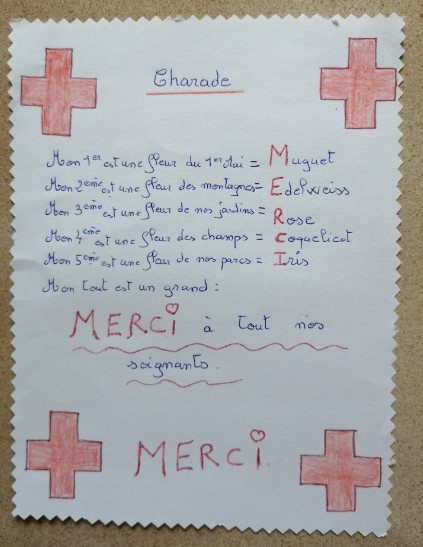 Charade
Mon 1er est une fleur du 1er Mai = Muguet
Mon 2ème est une fleur des montagnes = Edelweiss
Mon 3ème est une fleur de nos jardins = Rose
Mon 4ème est une fleur des champs = Coquelicot
Mon 5ème est une fleur de nos parcs = Iris
Mon tout est un grand :
MERCi à tout nos
soignants.
MERCi